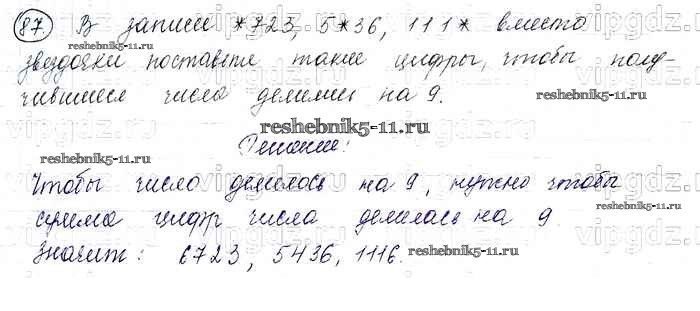 87 В записи *723, 5*36, 111* вместо
звездочки поставьте такие цифры, чтобы полу-
чившиеся числа делились на 9.
reshebnik5-11.ru
reshebnik5-11.ru
Решение:
reshebnik5-11.ru
reshebnik5-11.ru
Чтобы число делилось на 9, нужно чтобы
сумма цифр числа делилась на 9.
Значит: 6723, 5436, 1116.
reshebnik5-11.ru